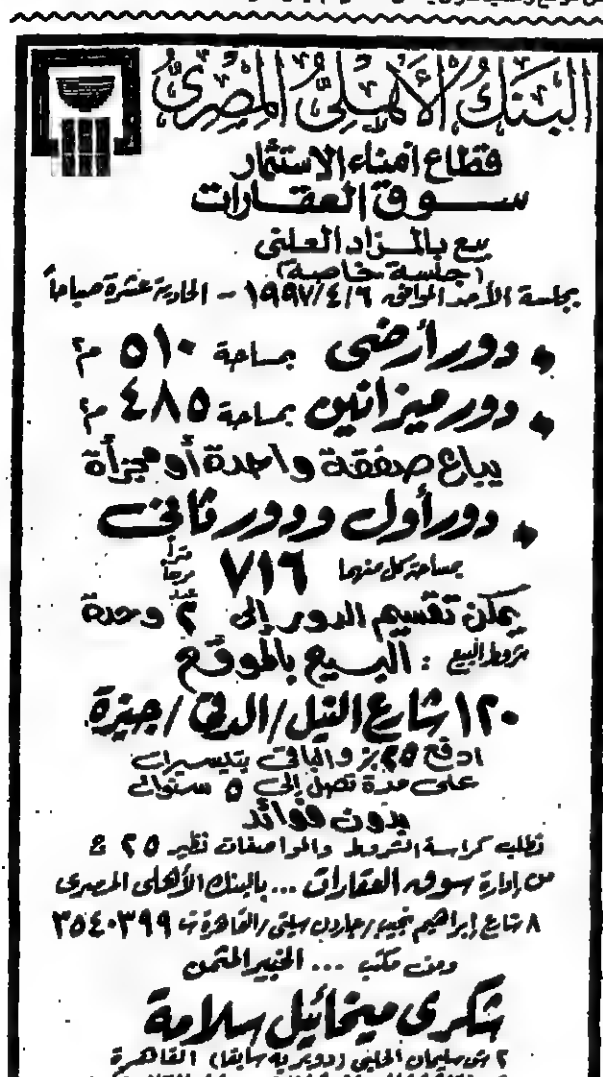 البنك الأهلى المصرى
قطاع أمناء الاستثمار
سوق العقارات
بيع بالمزاد العلنى
(جلسة خاصة)
بجلسة الأحد الموافق ١٩٩٧/٤/٦ - الحادية عشرة صباحاً
دور أرضى بمساحة ٥١٠ م٢
دور ميزانين بمساحة ٤٨٥ م٢
يباع صفقة واحدة أو مجزأة
دور أول ودور ثانى
بمساحة كل منهما ٧١٦ متراً مربعاً
يمكن تقسيم الدور إلى ٢ وحدة
شروط البيع : البيع بالموقع
١٢٠ شارع النيل / الدقى / جيزة
ادفع ٢٥٪ والباقى بتيسيرات
على مدة تصل إلى ٥ سنوات
بدون فوائد
تطلب كراسة الشروط والمواصفات نظير ٢٥ ج
من إدارة سوق العقارات ... بالبنك الأهلى المصرى
٨ شارع إبراهيم نجيب / جاردن سيتى / القاهرة ت ٣٥٤٠٣٩٩
ومن مكتب ... الخبير المثمن
شكرى ميخائيل سلامة
٢ ش سليمان الحلبى (دوبريه سابقا) القاهرة